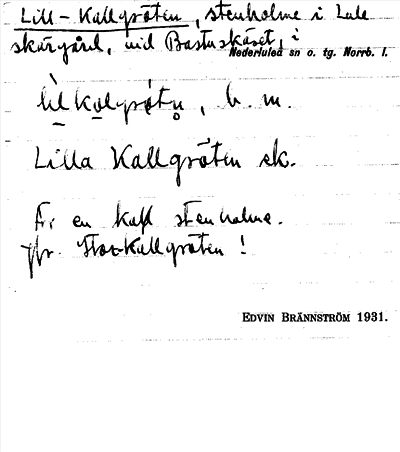 Lill-Kallgröten, stenholme i Lule
skärgård, vid Bastuskäret, i
Nederluleå sn o. tg. Norrb. l.
b. m.
Lilla Kallgröten ek.
Är en kall stenholme.
jfr. Stor-Kallgröten!
EDVIN BRÄNNSTRÖM 1931.